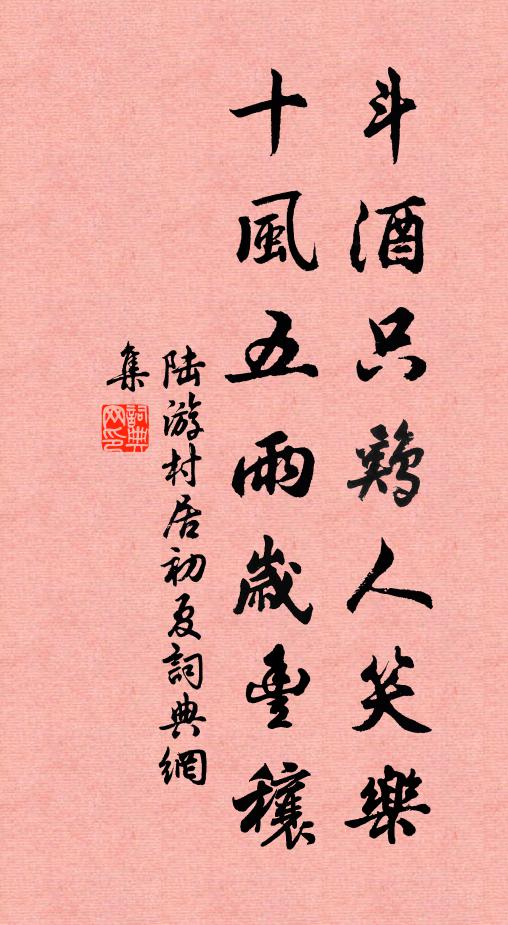 斗酒只鷄人笑樂
十風五雨歲豐穰
陆游村居初夏詞典網
集
詞典网印